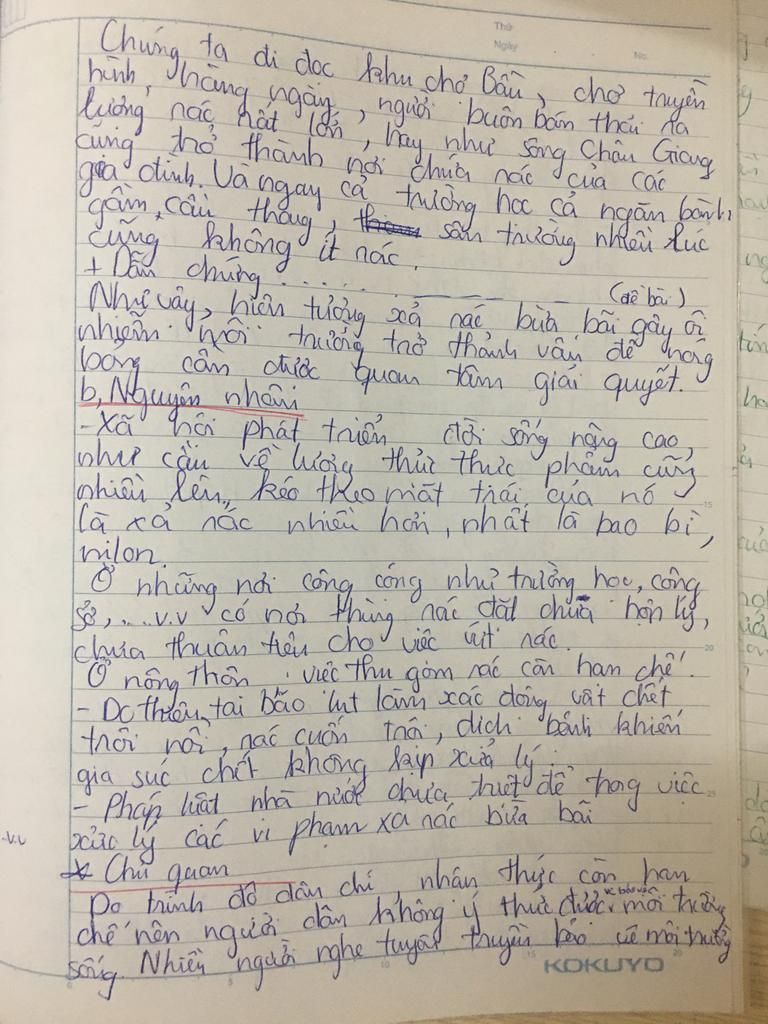 Thứ
Ngày
No.
Chúng ta đi dọc khu chợ Bầu, chợ truyền
hình, hàng ngày, người buôn bán thải ra
lượng rác rất lớn, hay như sông Châu Giang
cũng trở thành nơi chứa rác của các
gia đình. Và ngay cả trường học cả ngăn bàn,
gầm cầu thang, sân trường nhiều lúc
cũng không ít rác.
+ Dẫn chứng ........ (đề bài)
Như vậy, hiện tượng xả rác bừa bãi gây ô
nhiễm môi trường trở thành vấn đề nóng
bỏng cần được quan tâm giải quyết.
b, Nguyên nhân
- Xã hội phát triển đời sống nâng cao,
nhu cầu về lương thực thực phẩm cũng
nhiều lên, kéo theo mặt trái của nó
là xả rác nhiều hơn, nhất là bao bì,
nilon.
Ở những nơi công cộng như trường học, công
sở, ... v.v có nơi thùng rác đặt chưa hợp lý,
chưa thuận tiện cho việc vứt rác.
Ở nông thôn việc thu gom rác còn hạn chế.
- Do thiên tai bão lụt làm xác động vật chết
trôi nổi, rác cuốn trôi, dịch bệnh khiến
gia súc chết không kịp xử lý.
- Pháp luật nhà nước chưa triệt để trong việc
xử lý các vi phạm xả rác bừa bãi
* Chủ quan
Do trình độ dân chí, nhận thức còn hạn
chế nên người dân không ý thức được về bảo vệ môi trường
sống. Nhiều người nghe tuyên truyền bảo vệ môi trường
-v.v
KOKUYO